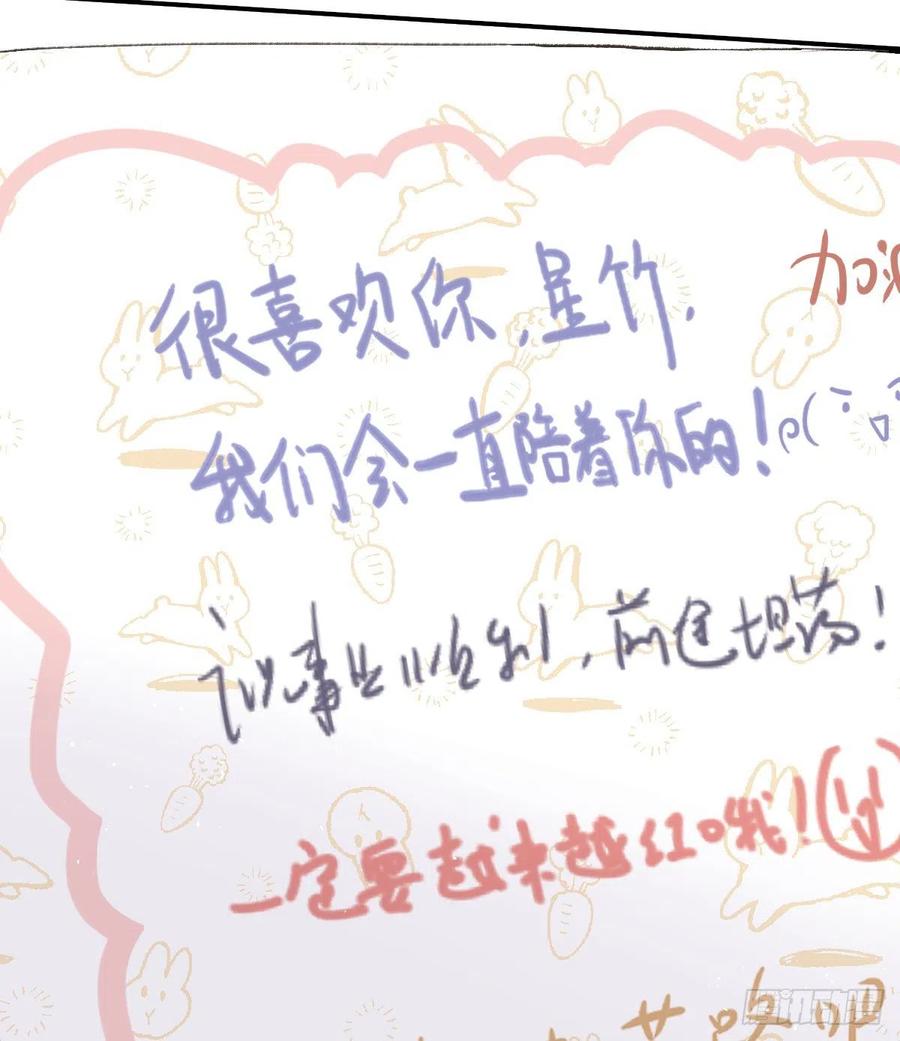 加油
很喜欢你,星竹,
我们会一直陪着你的!
祝事业顺利,前途坦荡!
一定要越来越红哦!